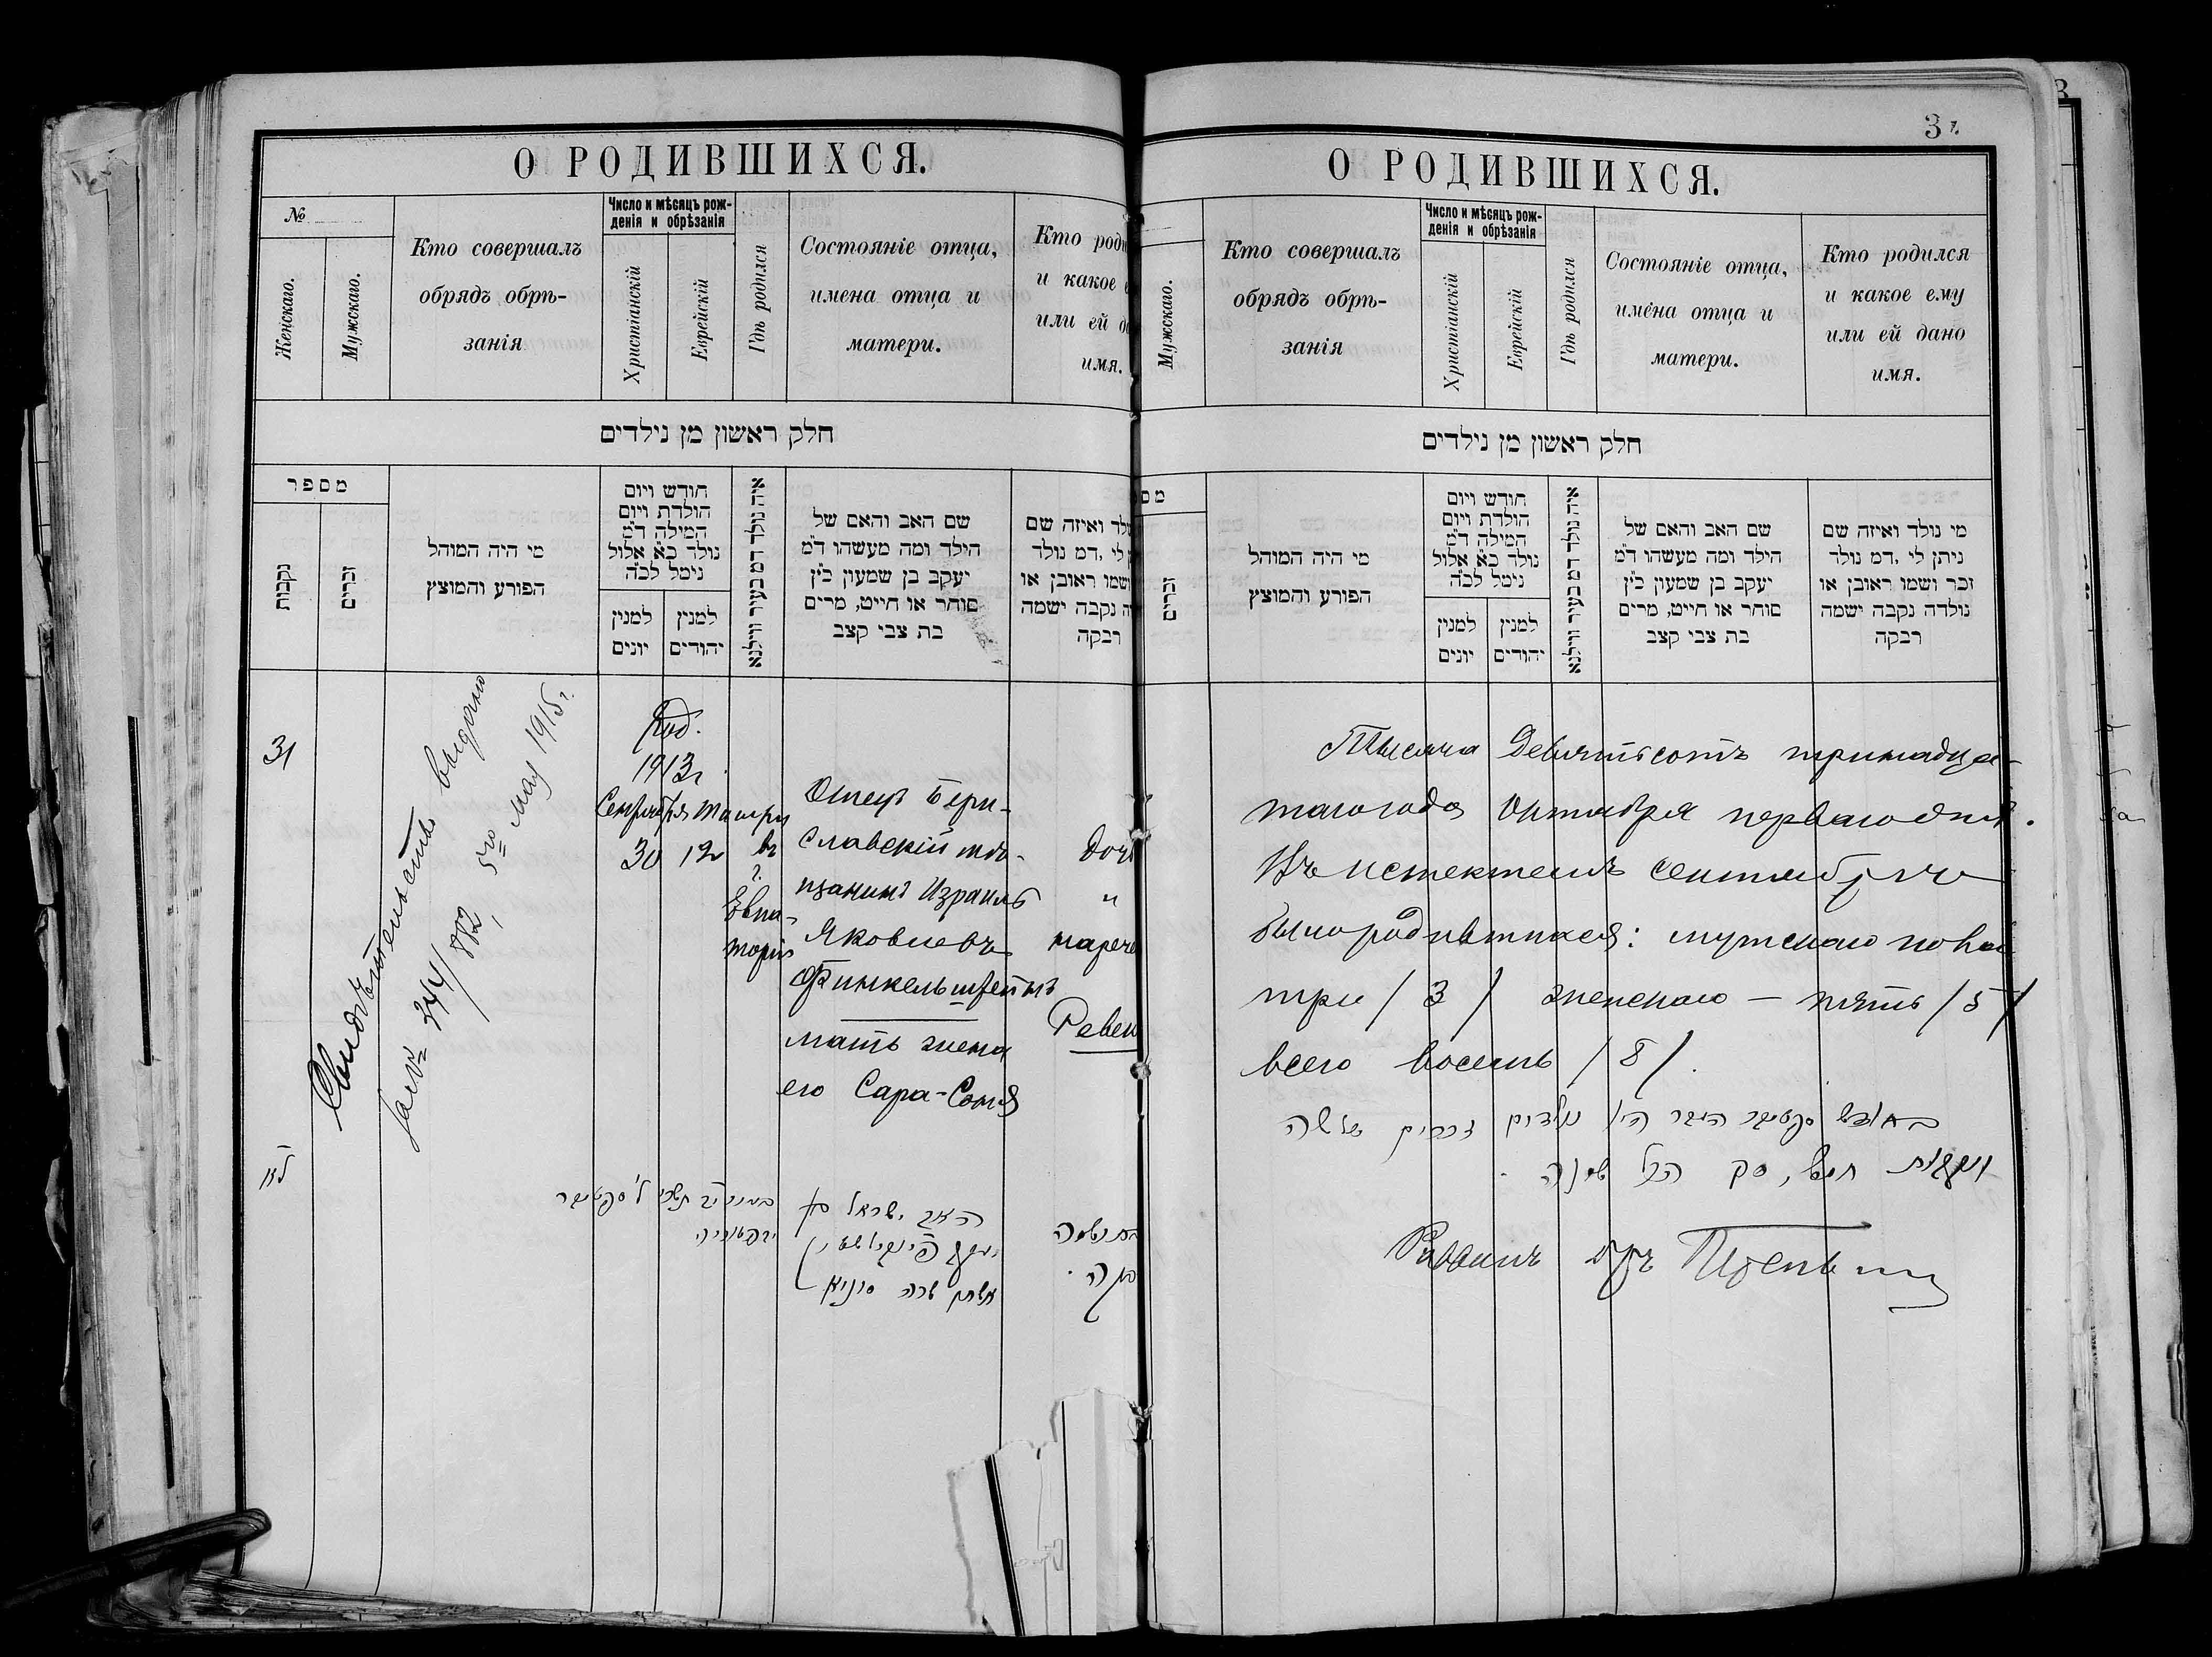 О РОДИВШИХСЯ.
№
Женскаго.
Мужскаго.
Кто совершалъ
обрядъ обрѣ-
занія
Число и мѣсяцъ рож-
денія и обрѣзанія
Христіанскій
Еврейскій
Гдѣ родился
Состояніе отца,
имена отца и
матери.
Кто роди
и какое
или ей
имя.
חלק ראשון מן נילדים
מספר
נקבות
זכרים
מי היה המוהל
הפורע והמוצץ
חודש ויום
הולדת ויום
המילה ד״מ
נולד כ״א אלול
נימל לכ״ה
למנין
יונים
למנין
יהודים
איה נולד דמ בעיר ווילנא
שם האב והאם של
הילד ומה מעשהו ד״מ
יעקב בן שמעון כ״ץ
סוחר או חייט, מרים
בת צבי קצב
ואיזה שם
לי ,דמ נולד
ושמו ראובן או
נקבה ישמה
רבקה
31
Свидѣтельство выдано
за № 344/782, 5го мая 1915 г.
Род.
1913 г.
Сентября Тишри
30 12
въ
г.
Евпа-
торіи
Отецъ Бери-
славскій мѣ-
щанинъ Израиль
Яковлевъ
Финкельштейнъ
мать жена
его Сара-Соня
Доч
"
нарече
Ревек
לא
תשרי ל' סקטיבר
האב ישראל בן
יעקב פינקלשטיין
אשתו שרה סוניא
О РОДИВШИХСЯ.
37.
Мужскаго.
Кто совершалъ
обрядъ обрѣ-
занія
Число и мѣсяцъ рож-
денія и обрѣзанія
Христіанскій
Еврейскій
Гдѣ родился
Состояніе отца,
имена отца и
матери.
Кто родился
и какое ему
или ей дано
имя.
חלק ראשון מן נילדים
זכרים
מי היה המוהל
הפורע והמוצץ
חודש ויום
הולדת ויום
המילה ד״מ
נולד כ״א אלול
נימל לכ״ה
למנין
יונים
למנין
יהודים
איה נולד דמ בעיר ווילנא
שם האב והאם של
הילד ומה מעשהו ד״מ
יעקב בן שמעון כ״ץ
סוחר או חייט, מרים
בת צבי קצב
מי נולד ואיזה שם
ניתן לי ,דמ נולד
זכר ושמו ראובן או
נולדה נקבה ישמה
רבקה
Тысяча Девятьсотъ тринадца-
таго года Октября перваго дня.
Въ истекшемъ сентябрѣ
было родившихся: мужскаго пола
три /3/ женскаго — пять /5/
всего восемь /8/.
בחודש סקטיבר העבר היו נולדים זכרים שלשה
ונקבות חמש, סך הכל שמנה.
Раввинъ